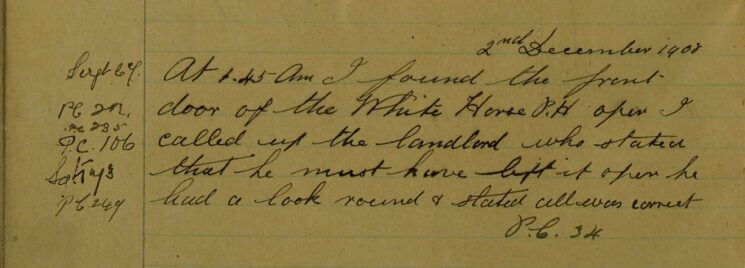 2nd December 1908
Sergt 67.
At 1.45 Am I found the front
P.C. 211.
door of the White Horse P.H open I
P.C. 235
P.C. 106
called up the landlord who stated
that he must have left it open he
P.C 249
had a look round & stated all was correct
P.C. 34